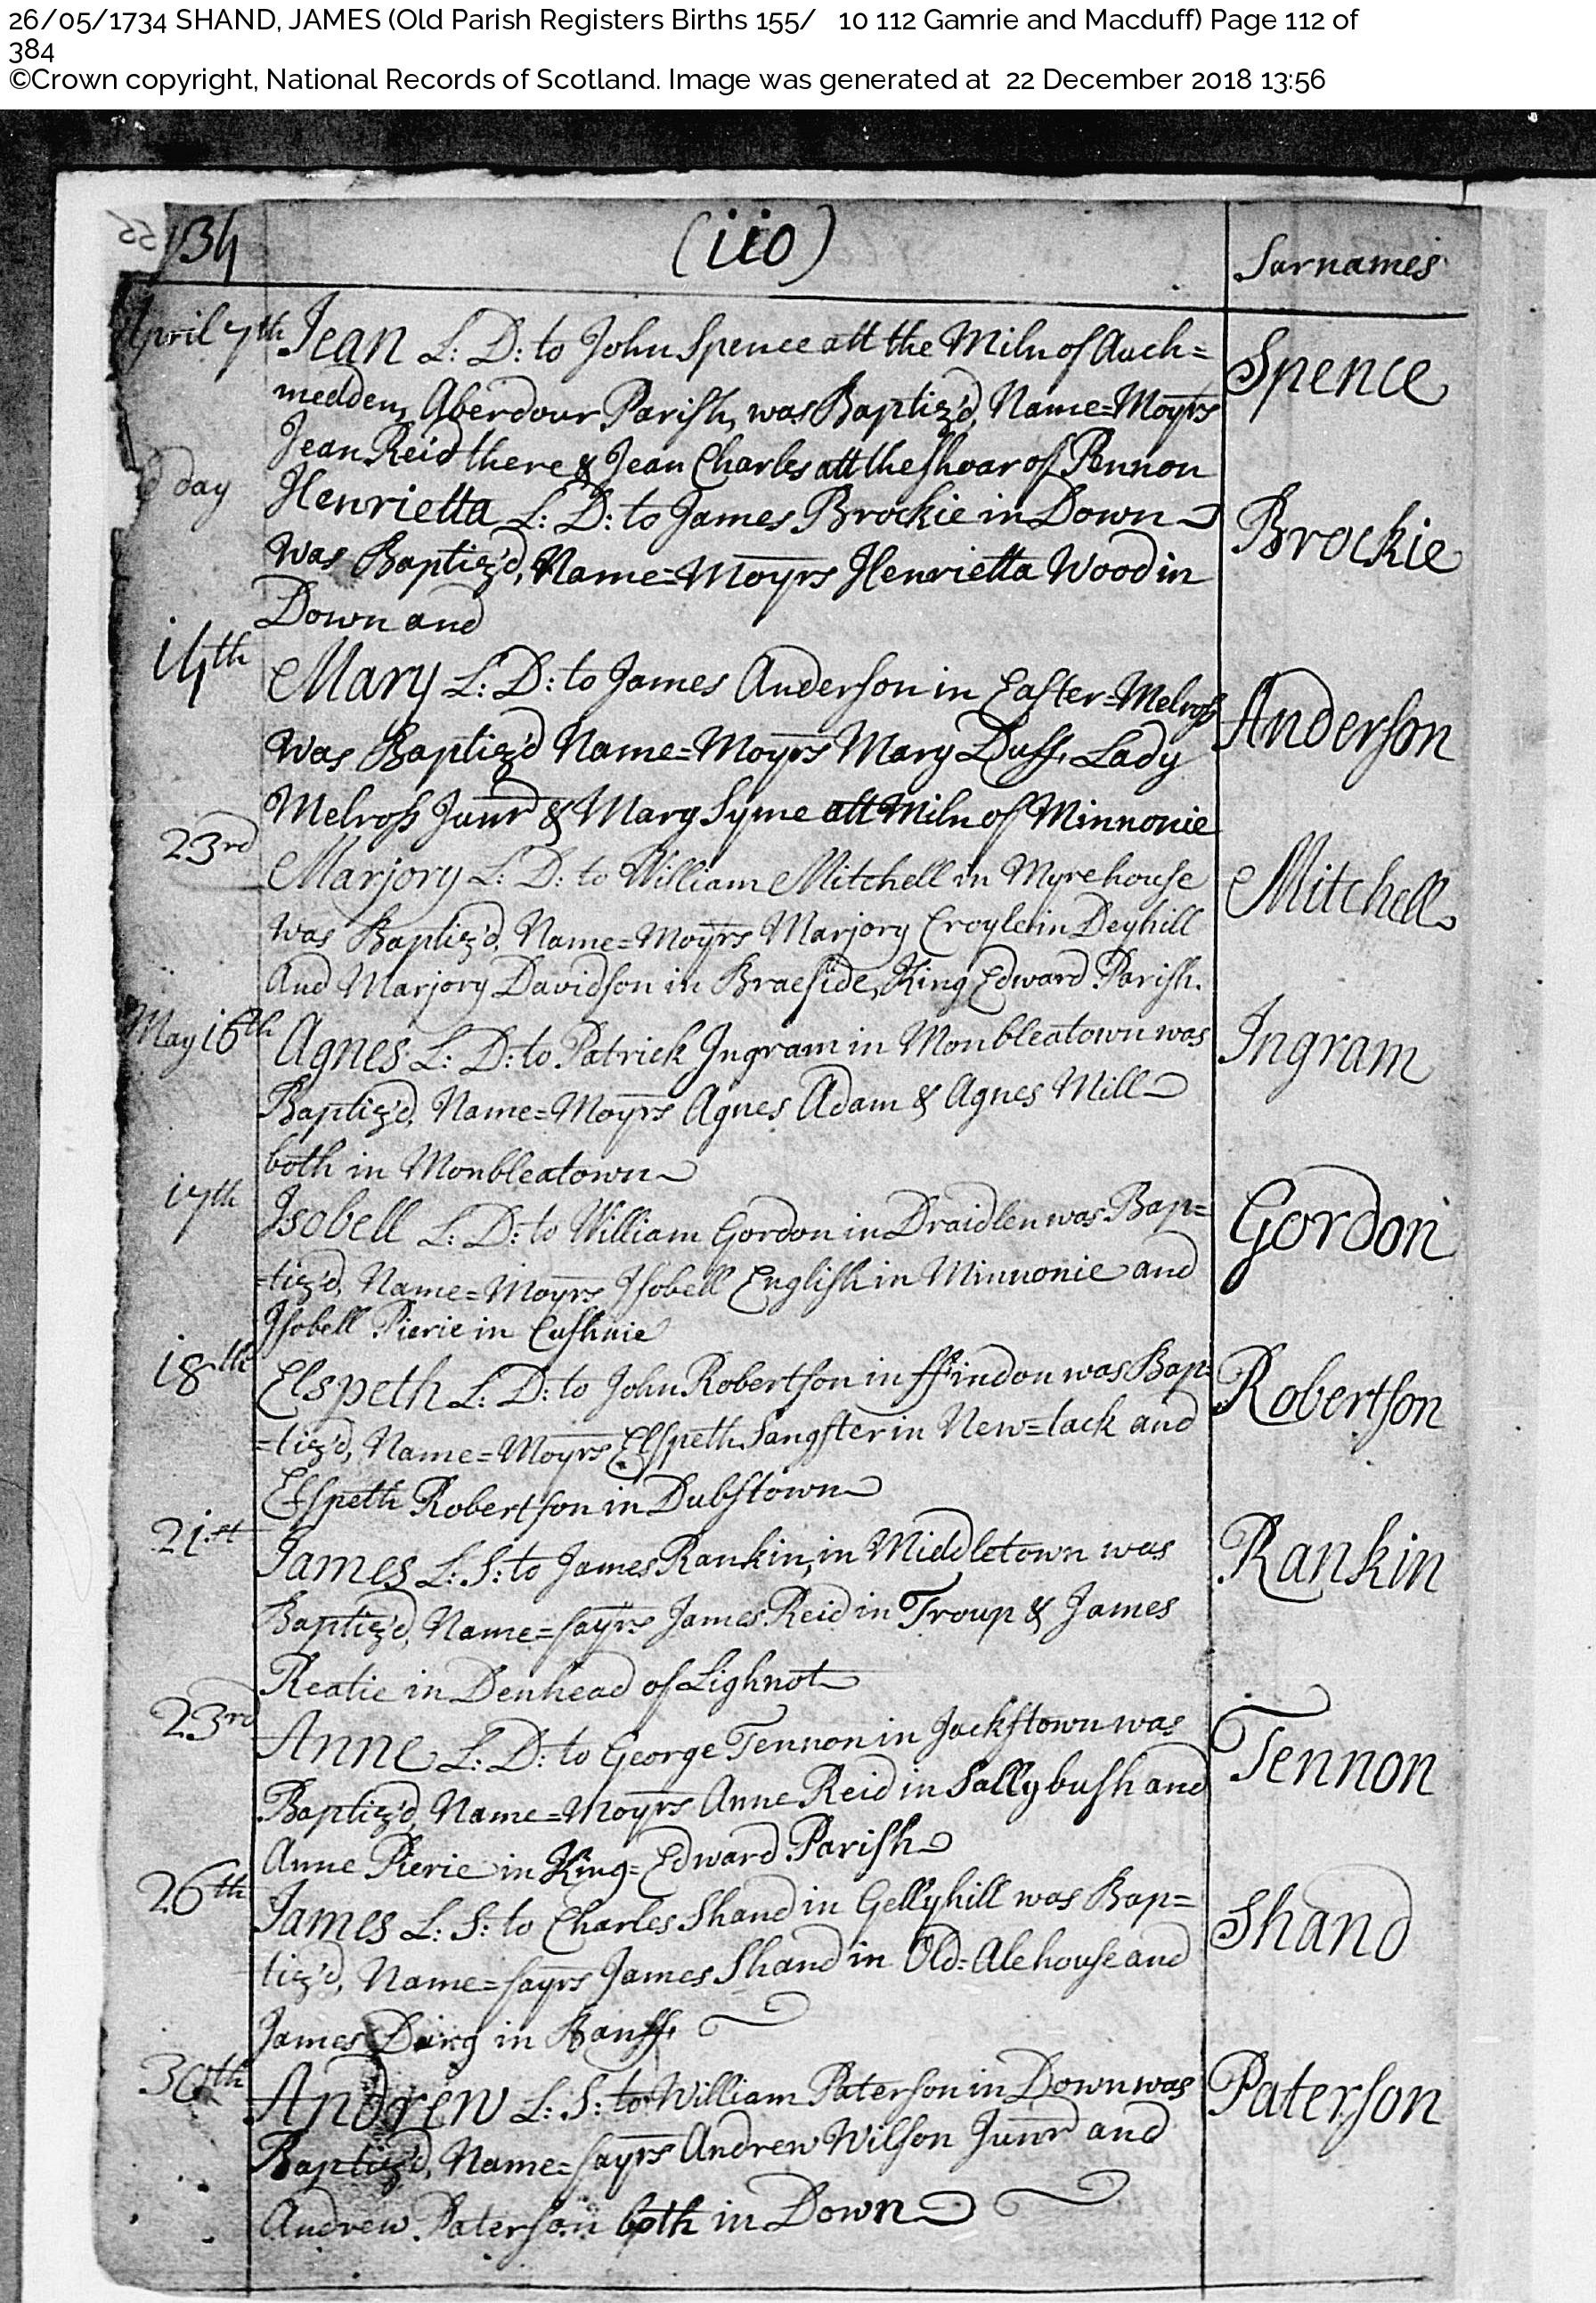 26/05/1734 SHAND, JAMES (Old Parish Registers Births 155/ 10 112 Gamrie and Macduff) Page 112 of
384
©Crown copyright, National Records of Scotland. Image was generated at 22 December 2018 13:56
1734 (110) Surnames
April 7th Jean L: D: to John Spence att the Miln of Auch=
Spence
medden, Aberdour Parish, was Baptiz'd, Name=Moyrs
Jean Reid there & Jean Charles att the shoar of Pennon
day Henrietta L: D: to James Brockie in Down
Brockie
was Baptiz'd, Name=Moyrs Henrietta Wood in
Down and
14th Mary L: D: to James Anderson in Easter=Melross
Anderson
was Baptiz'd Name=Moyrs Mary Duff, Lady
Melross Junr & Mary Syme att Miln of Minnonie
23rd Marjory L: D: to William Mitchell in Myrehouse
Mitchell
was Baptiz'd, Name=Moyrs Marjory in Deyhill
And Marjory Davidson in Braeside, King Edward Parish.
May 16th Agnes L: D: to Patrick Ingram in Monbleatown was
Ingram
Baptiz'd, Name=Moyrs Agnes Adam & Agnes Mill
both in Monbleatown
17th Isobell L: D: to William Gordon in Draidlen was Bap=
Gordon
=tiz'd, Name=Moyrs Isobell English in Minnonie and
Isobell Pierie in Cushnie
18th Elspeth L: D: to John Robertson in ffindon was Bap=
Robertson
=tiz'd, Name=Moyrs Elspeth Sangster in New=tack and
Elspeth Robertson in Dubstown
21st James L: S: to James Rankin, in Middletown was
Rankin
Baptiz'd, Name=fayrs James Reid in Troup & James
in Denhead of Lighnot
23rd Anne L: D: to George Tennon in Jackstown was
Tennon
Baptiz'd, Name=Moyrs Anne Reid in Sallybush and
Anne Pierie in King=Edward Parish
26th James L: S: to Charles Shand in Gellyhill was Bap=
Shand
tiz'd, Name=fayrs James Shand in Old=Alehouse and
James in Banff,
30th Andrew L: S: to William Paterson in Down was
Paterson
Baptiz'd, Name=fayrs Andrew Wilson Junr and
Andrew Paterson both in Down